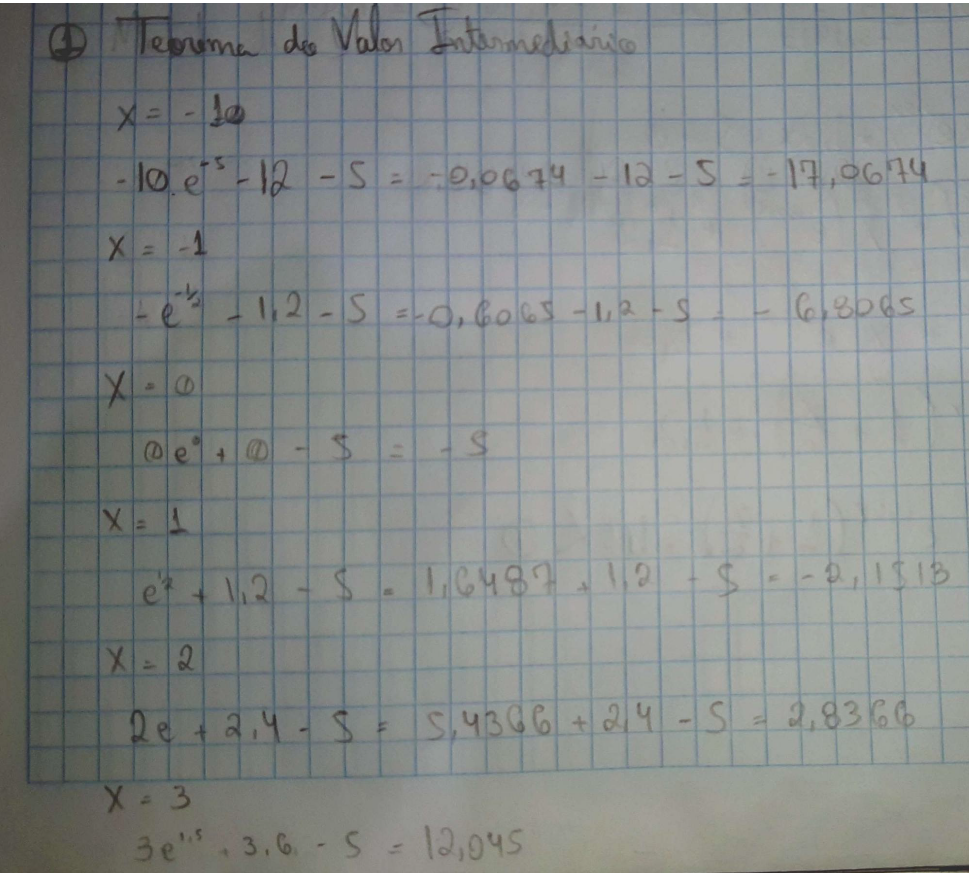 ① Teorema do Valor Intermediário
x = -10
-10.e^-5 - 12 - 5 = -0,0674 - 12 - 5 = -17,0674
x = -1
-e^-1/2 - 1,2 - 5 = -0,6065 - 1,2 - 5 = - 6,8065
x = 0
0e^0 + 0 - 5 = -5
x = 1
e^1/2 + 1,2 - 5 = 1,6487 + 1,2 - 5 = -2,1513
x = 2
2e + 2,4 - 5 = 5,4366 + 2,4 - 5 = 2,8366
x = 3
3e^1,5 + 3,6 - 5 = 12,045